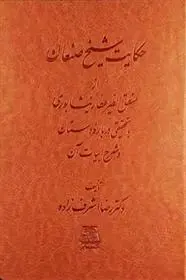 حکایت شیخ صنعان
از
منطق الطیر عطار نیشابوری
با تحقیقی درباره داستان
و شرح ابیات آن
تألیف
دکتر رضا اشرف زاده